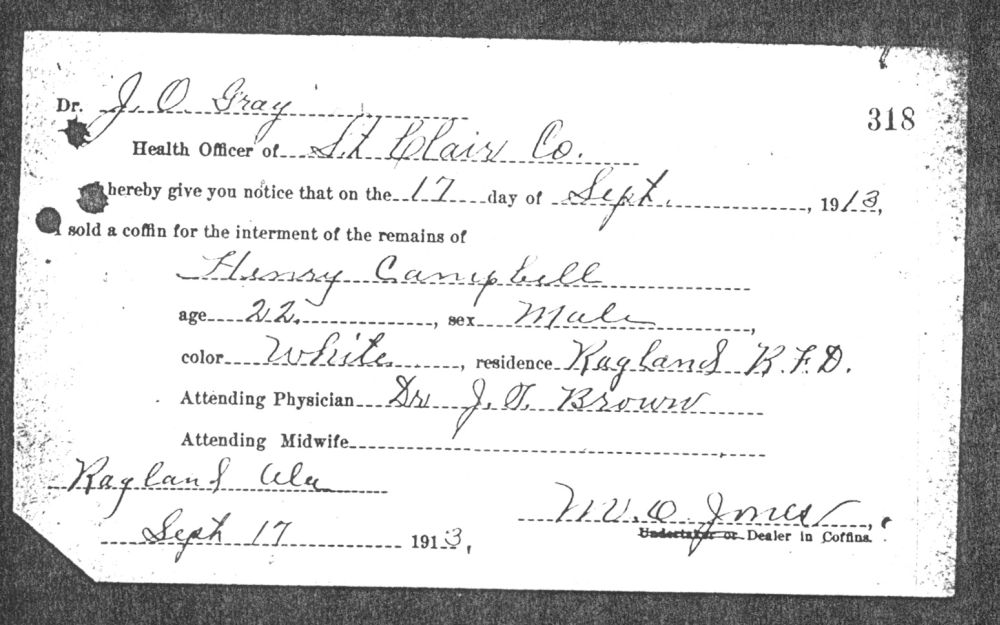 Dr. J. O. Gray
318
Health Officer of St Clair Co.
hereby give you notice that on the 17 day of Sept. , 1913,
I sold a coffin for the interment of the remains of
Henry Campbell
age 22. , sex Male ,
color White , residence Ragland R.F.D.
Attending Physician Dr J. T. Brown
Attending Midwife
Ragland Ala
O. Jones ,
Undertaker or Dealer in Coffins.
Sept 17 1913,